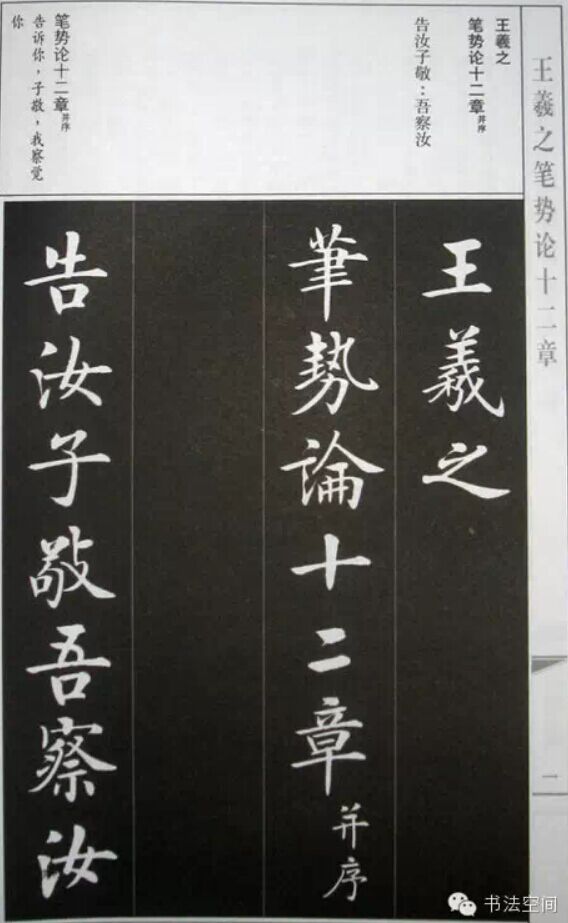 王羲之笔势论十二章
一
王羲之
笔势论十二章并序
告汝子敬：吾察汝
笔势论十二章并序
告诉你，子敬，我察觉
你
王羲之
筆勢論十二章并序
告汝子敬吾察汝
书法空间